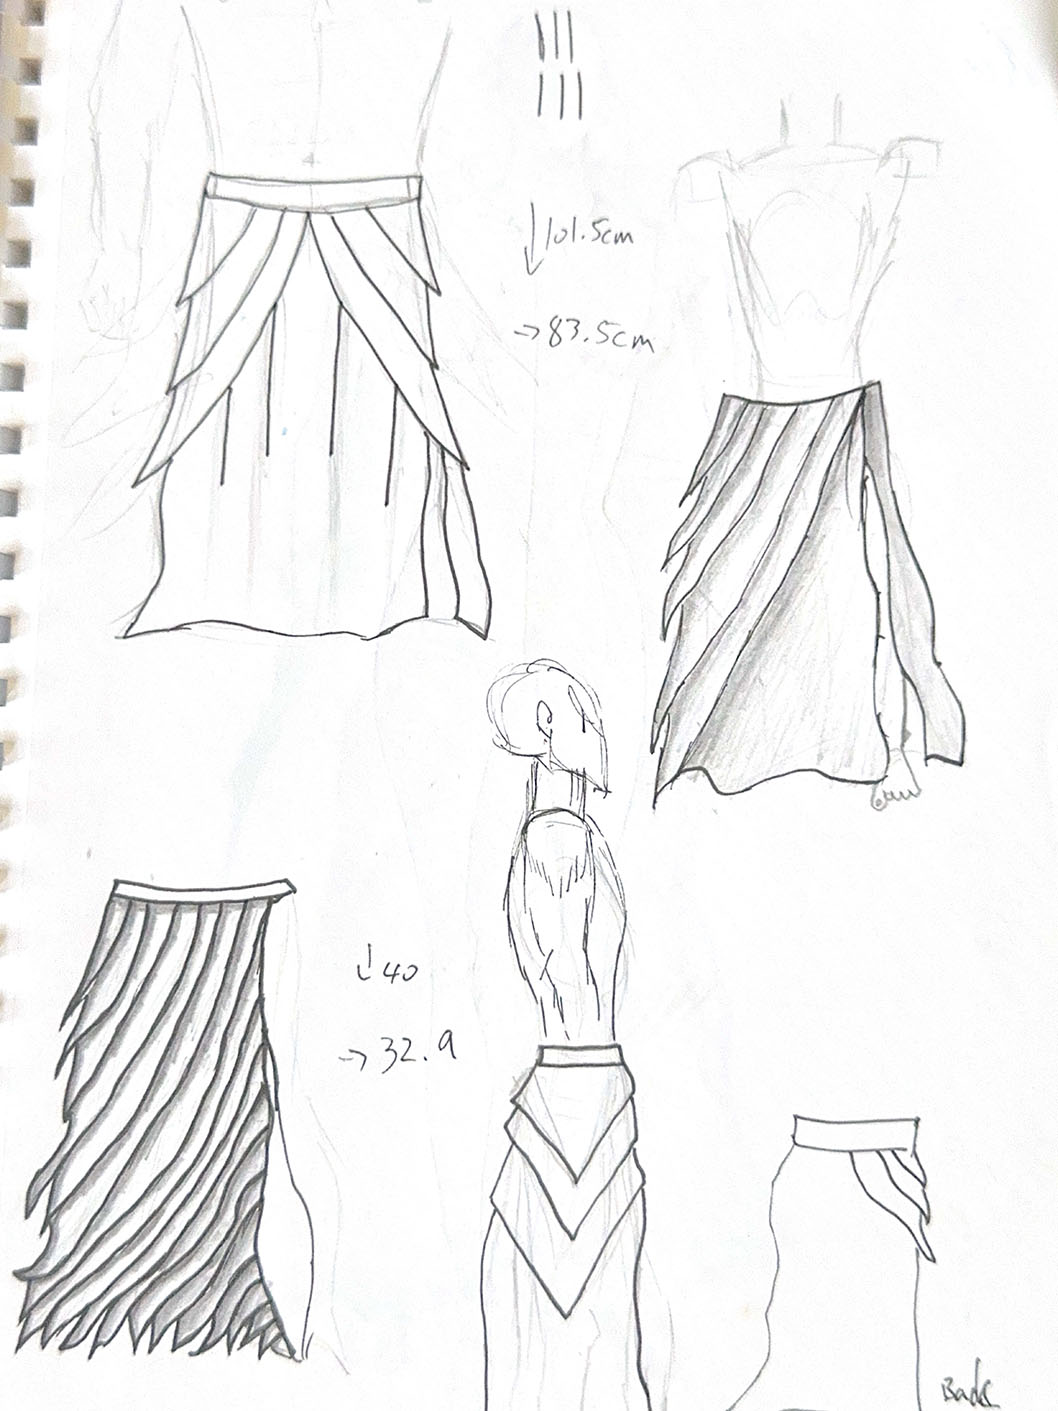 ↓101.5cm
→83.5cm
↓40
→32.9
Back